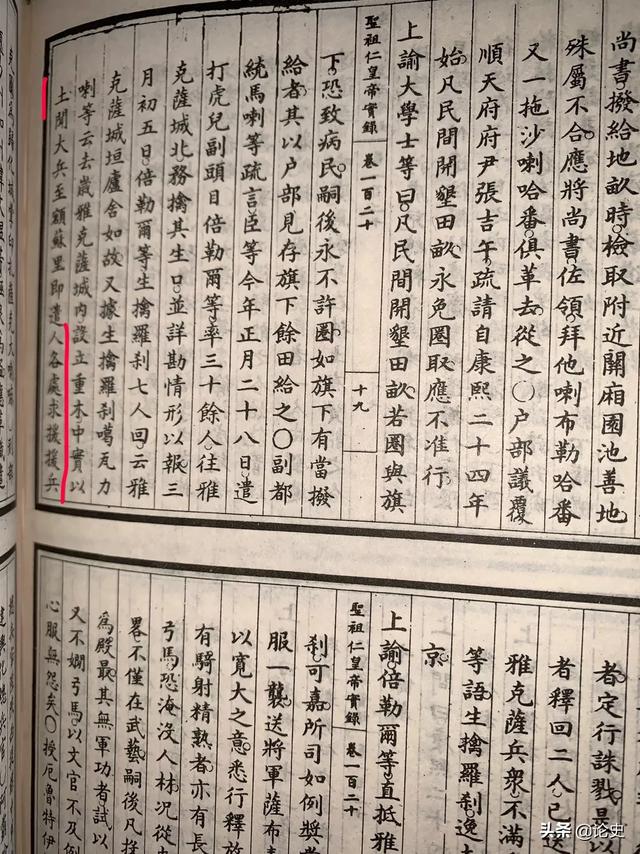 尚書撥給地畝時檢取附近關廂園池善地
殊屬不合應將尚書佐領拜他喇布勒哈番
又一拖沙喇哈番俱革去從之○戶部議覆
順天府府尹張吉午疏請自康熙二十四年
始凡民間開墾田畝永免圈取應不准行
上諭大學士等曰凡民間開墾田畝若圈與旗
聖祖仁皇帝實錄 卷一百二十 十九
下恐致病民嗣後永不許圈如旗下有當撥
給者其以戶部見存旗下餘田給之○副都
統馬喇等疏言臣等今年正月二十八日遣
打虎兒副頭目倍勒爾等率三十餘人往雅
克薩城北務擒其生口並詳勘情形以報三
月初五日倍勒爾等生擒羅剎七人回云雅
克薩城垣廬舍如故又據生擒羅剎噶瓦力
喇等云去歲雅克薩城內設立重木中實以
土聞大兵至額蘇里即遣人各處求援援兵
者定行誅戮是以
者釋回二人已送
雅克薩兵眾不滿
等語生擒羅剎逸
京
上諭倍勒爾等直抵雅
聖祖仁皇帝實錄 卷一百二十
剎可嘉所司如例獎
服一襲送將軍薩布
以寬大之意悉行釋
有騎射精熟者亦有長
弓馬恐淹沒人材況從
畧不僅在武藝嗣後凡
為殿最其無軍功者試以
又不嫺弓馬以文官不及例
心服無怨矣○授厄魯特伊
头条 @论史